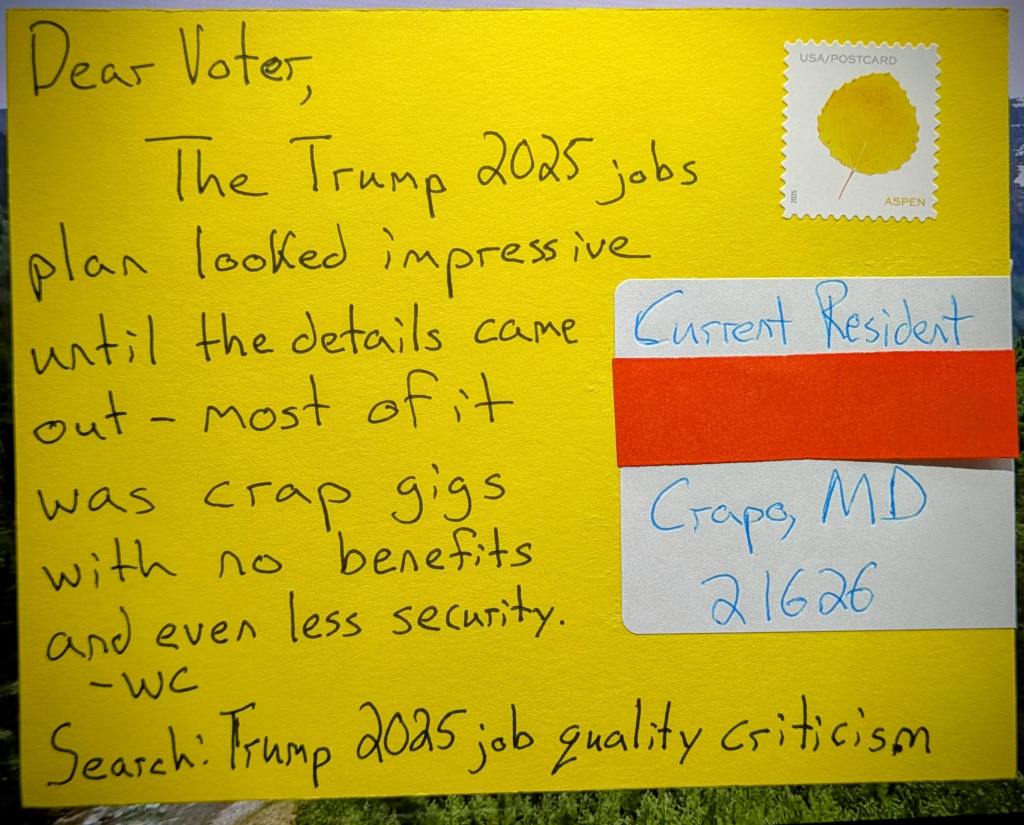 Dear Voter,
USA/POSTCARD
2025
ASPEN
The Trump 2025 jobs
plan looked impressive
until the details came
out - most of it
was crap gigs
with no benefits
and even less security.
-WC
Search: Trump 2025 job quality criticism
Current Resident
Crapo, MD
21626